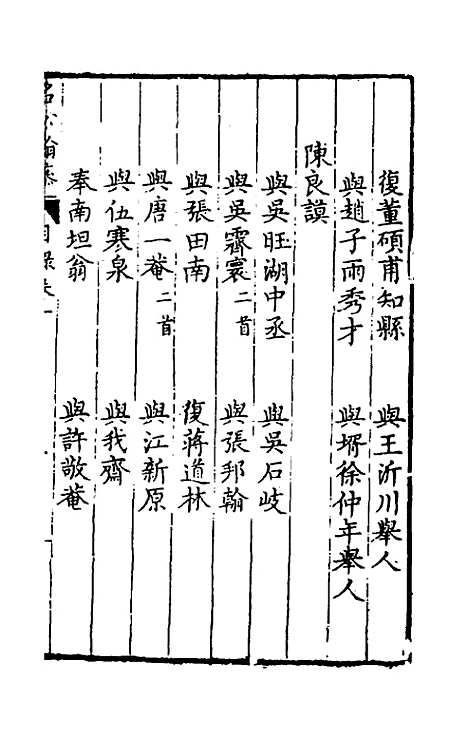 復董碩甫知縣　與王沂川舉人
與趙子雨秀才　與壻徐仲年舉人
陳良謨
與吳旺湖中丞　與吳石岐
與吳霽寰二首　與張邦翰
與張田南　復蔣道林
與唐一菴二首　與江新原
與伍寒泉　與我齋
奉南坦翁　與許敬菴
目錄